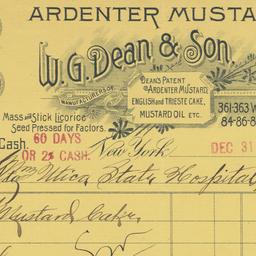 ARDENTER MUSTA
W. G. Dean & Son.
MANUFACTURERS OF
DEAN'S PATENT
ARDENTER MUSTARD,
ENGLISH and TRIESTE CAKE,
MUSTARD OIL ETC.
361-363 W
84-86-8
Mass and Stick Licorice
Seed Pressed for Factors.
Cash.
60 DAYS
OR 2% CASH.
New York,
DEC 31
Utica State Hospital
Mustard Cake